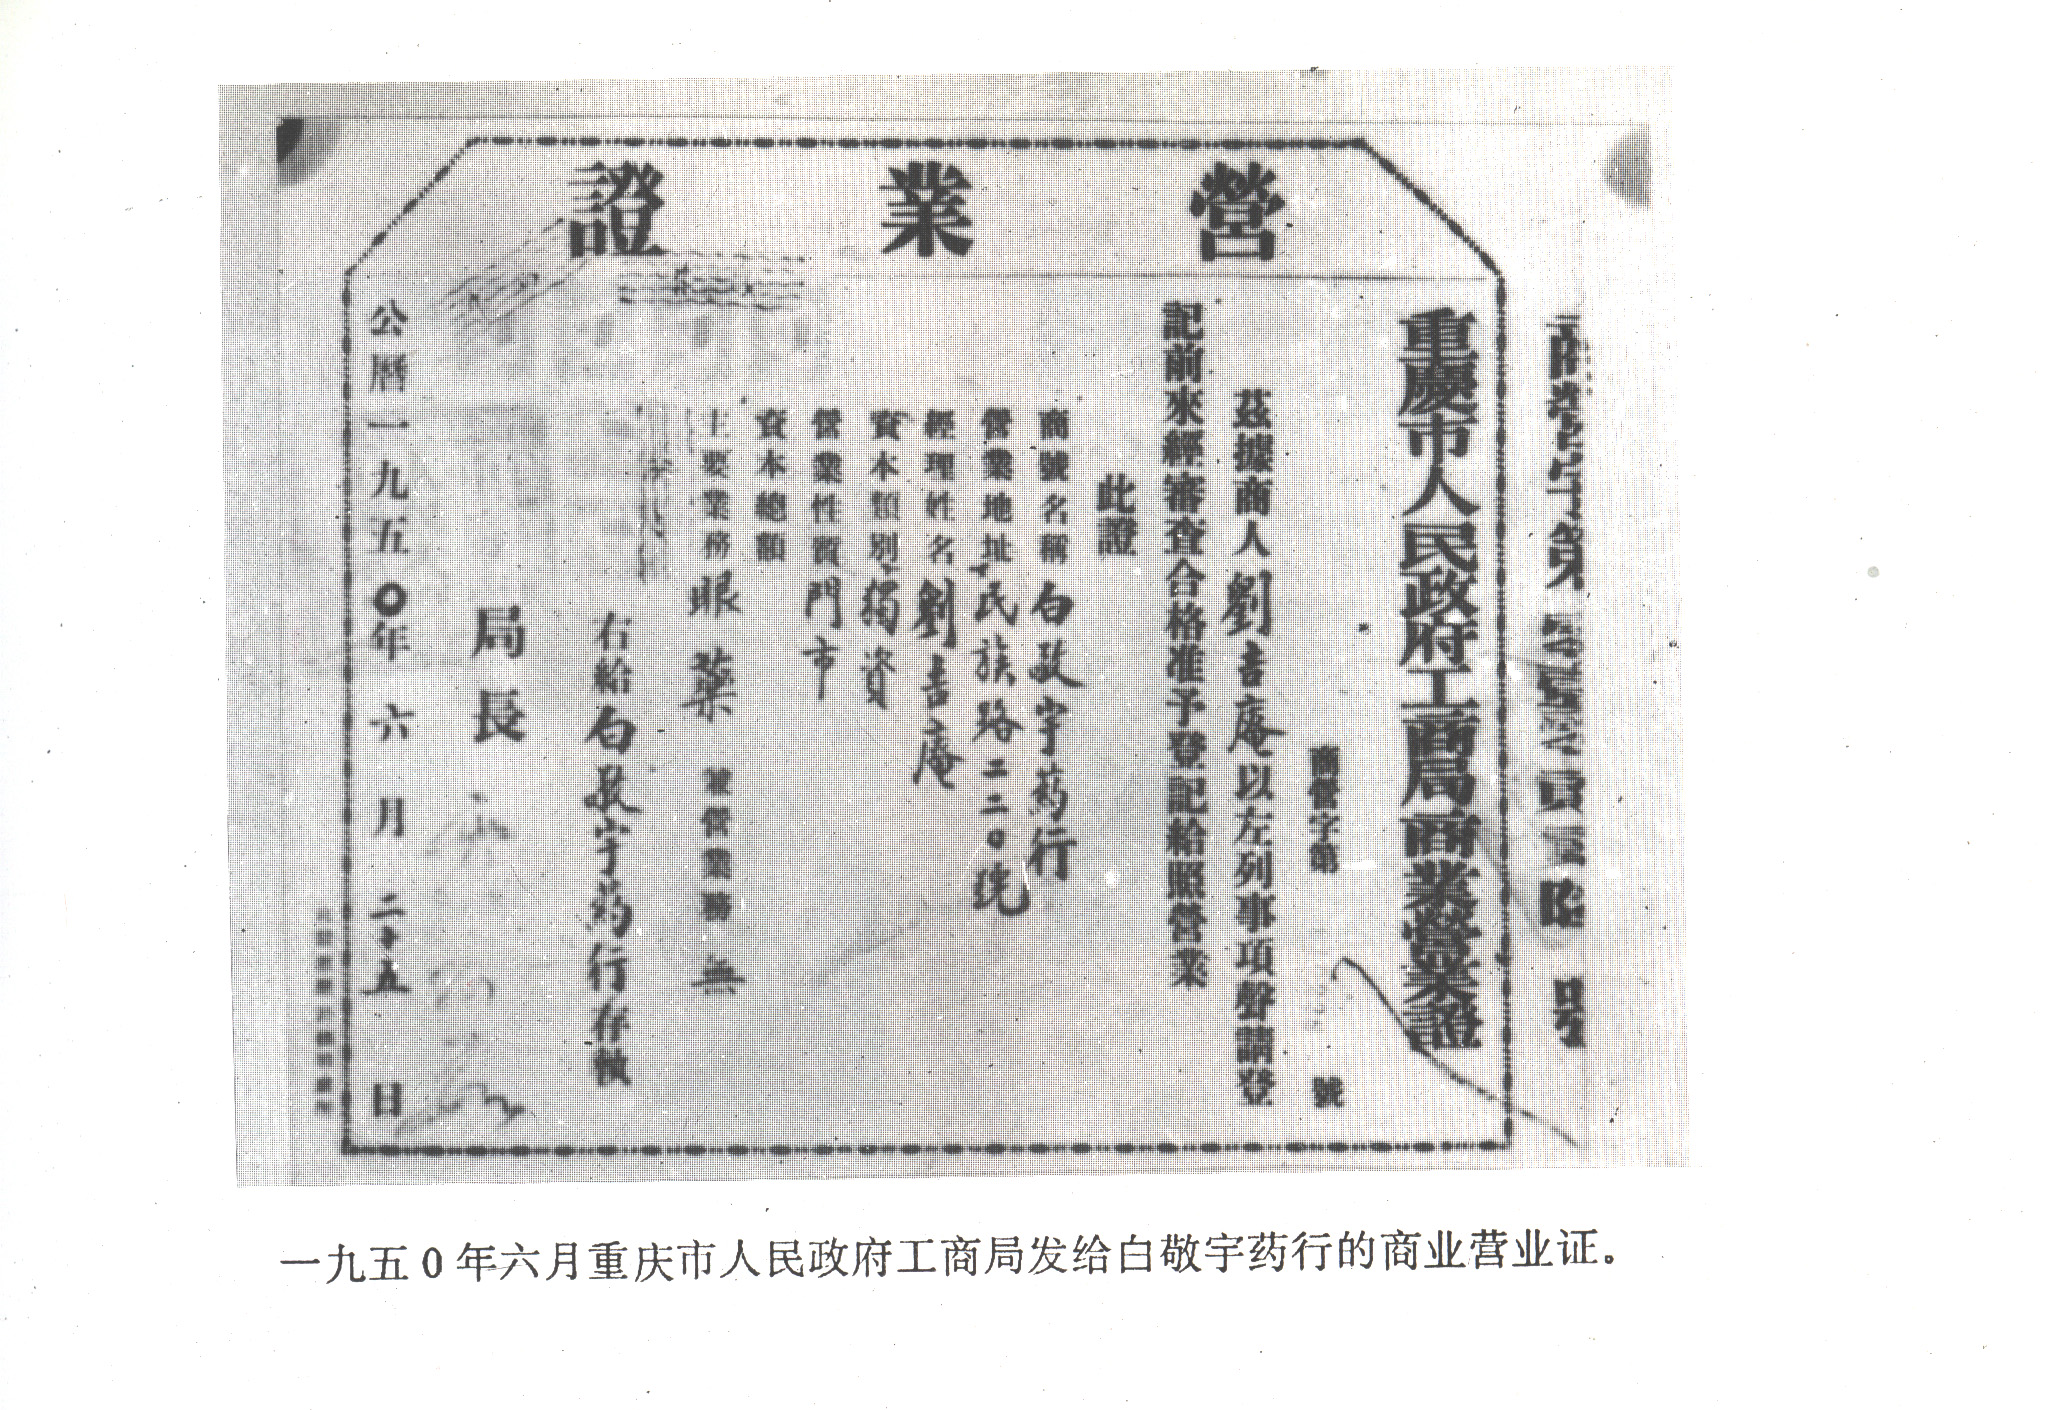 營業證
重慶市人民政府工商局商業營業證
商營字第 號
茲據商人劉吉庵以左列事項聲請登
記前來經審查合格准予登記給照營業
此證
商號名稱白敬宇药行
營業地址民族路二二0號
經理姓名劉吉庵
資本類別獨資
營業性質門市
資本總額
主要業務眼藥 兼營業務無
右給白敬宇药行存執
局長
公曆一九五〇年六月二十五日
一九五0年六月重庆市人民政府工商局发给白敬宇药行的商业营业证。